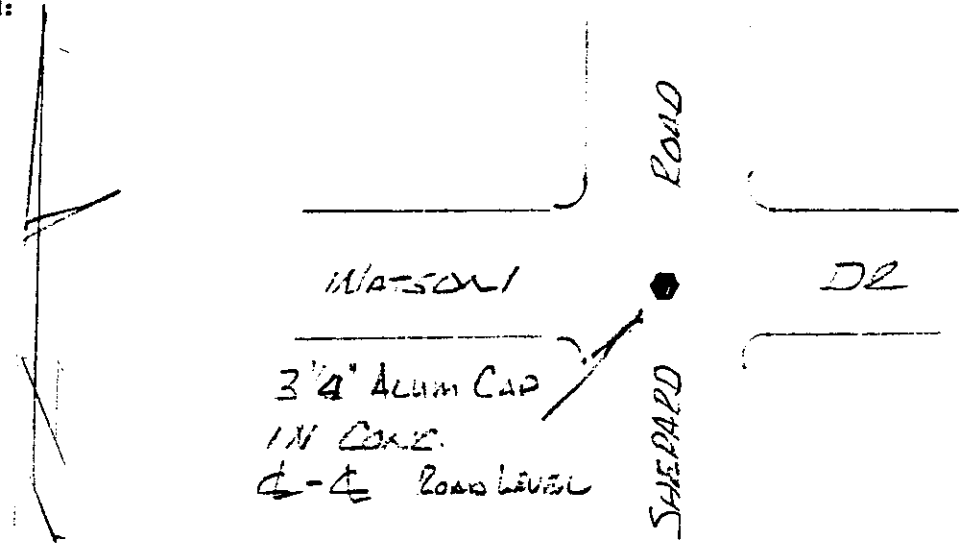 ROAD
WATSON DR
3 1/4" ALUM CAP
IN CONC.
℄-℄ ROAD LEVEL
SHEPARD